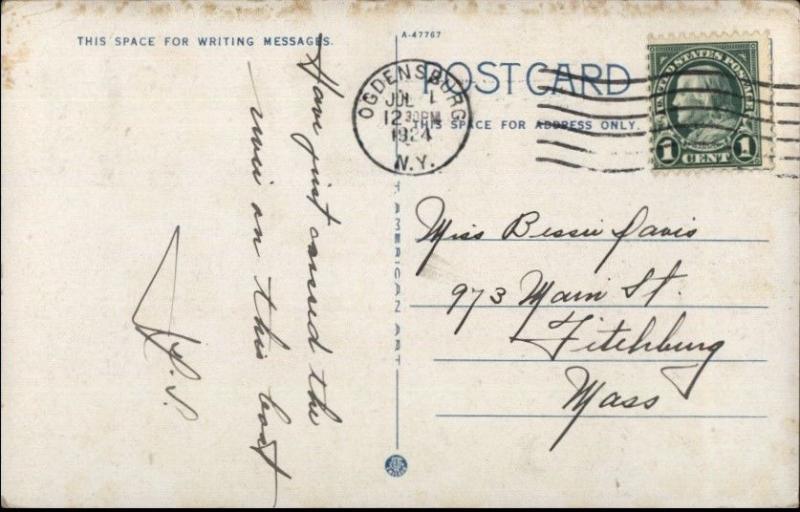 THIS SPACE FOR WRITING MESSAGES.
Have just crossed the
river on this boat
P.S.
A-47767
POST CARD
THIS SPACE FOR ADDRESS ONLY.
OGDENSBURG
JUL 1
12 30PM
1924
N.Y.
UNITED STATES POSTAGE
1 CENT 1
AMERICAN ART
Miss Bessie Davis
973 Main St.
Fitchburg
Mass